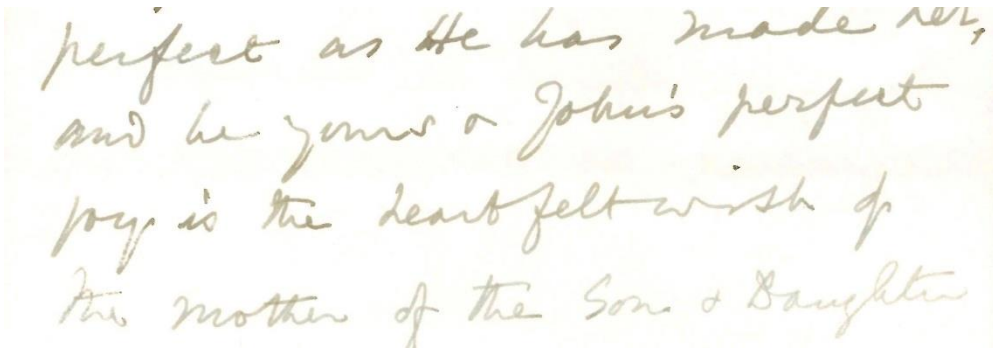 perfect as He has made her,
and be yours & John's perfect
joy is the heartfelt wish of
the mother of the Son & Daughter